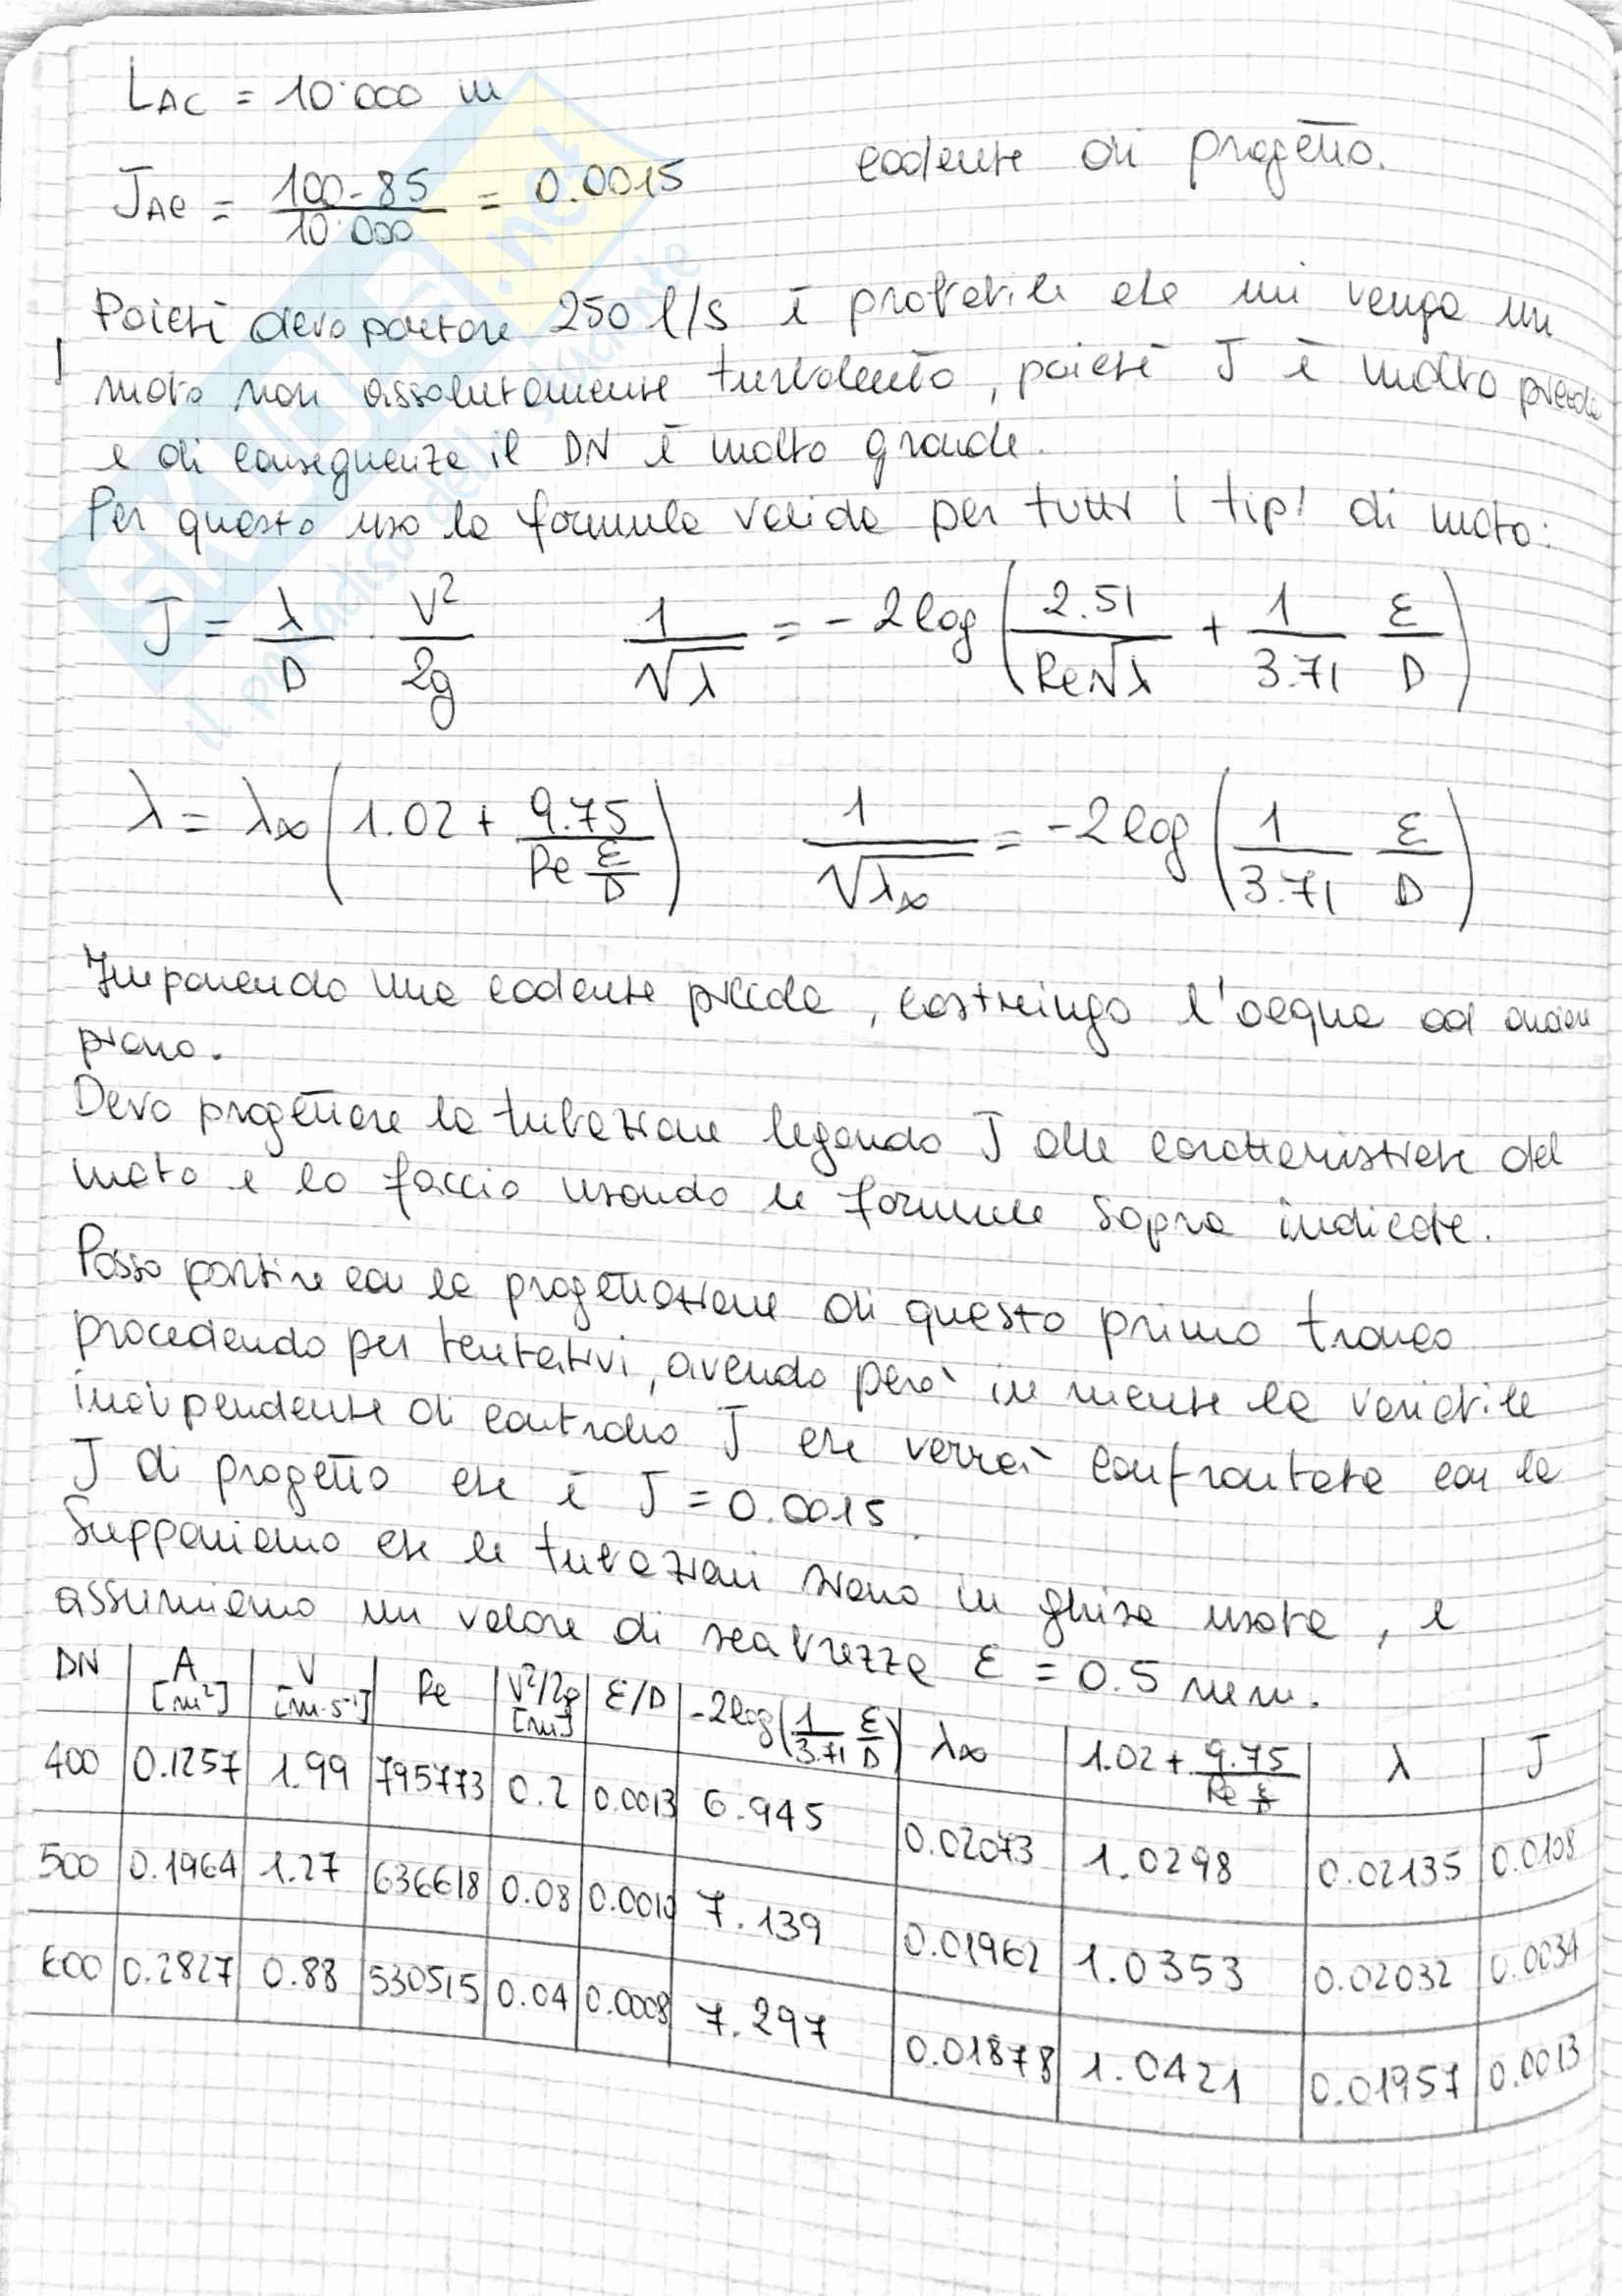 LAC = 10'000 m
JAC = 100-85 / 10'000 = 0.0015 cadente di progetto.
Poiché devo portare 250 l/s è probabile che mi venga un
! moto non assolutamente turbolento, poiché J è molto piccola
e di conseguenza il DN è molto grande.
Per questo uso la formula valida per tutti i tipi di moto:
J = λ/D · V²/2g 1/√λ = -2log(2.51/Re√λ + 1/3.71 ε/D)
λ = λ∞(1.02 + 9.75/Re ε/D) 1/√λ∞ = -2log(1/3.71 ε/D)
Imponendo una cadente piccola, costringo l'acqua ad andare
piano.
Devo progettare la tubazione legando J alle caratteristiche del
moto e lo faccio usando le formule sopra indicate.
Posso partire con la progettazione di questo primo tronco
procedendo per tentativi, avendo però in mente la variabile
indipendente di controllo J che verrà confrontata con la
J di progetto che è J = 0.0015.
Supponiamo che le tubazioni siano in ghisa usata, e
assumiamo un valore di scabrezza ε = 0.5 mm.
DN | A [m²] | V [m·s⁻¹] | Re | V²/2g [m] | ε/D | -2log(1/3.71 ε/D) | λ∞ | 1.02 + 9.75/Re ε/D | λ | J
400 | 0.1257 | 1.99 | 795773 | 0.2 | 0.0013 | 6.945 | 0.02073 | 1.0298 | 0.02135 | 0.0108
500 | 0.1964 | 1.27 | 636618 | 0.08 | 0.0010 | 7.139 | 0.01962 | 1.0353 | 0.02032 | 0.0034
600 | 0.2827 | 0.88 | 530515 | 0.04 | 0.0008 | 7.297 | 0.01878 | 1.0421 | 0.01957 | 0.0013
SKUOLA.net
il paradiso dello studente